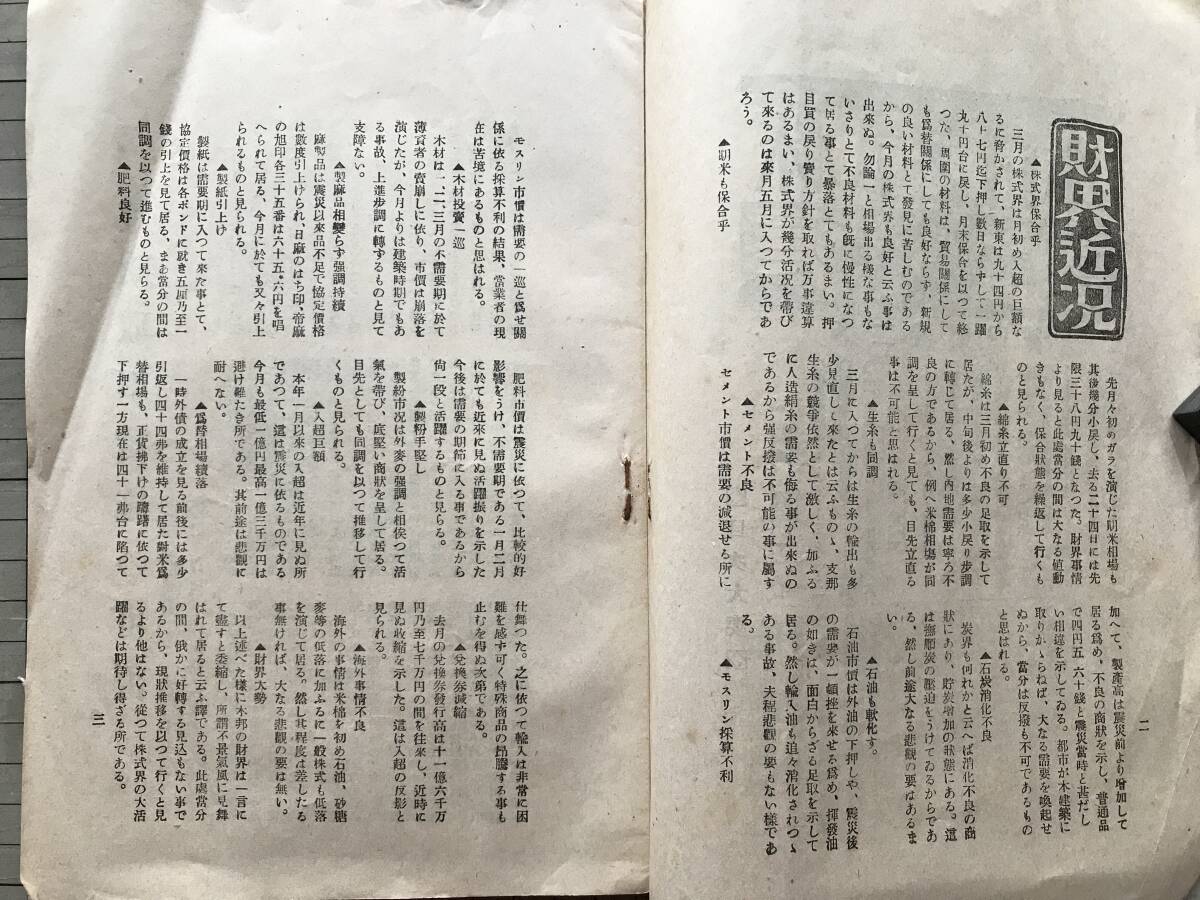 財界近况
▲株式界保合乎
三月の株式界は月初め入超の巨額な
るに脅かされて、新東は九十四円から
八十七円迄下押し數日ならずして一躍
九十円台に戻し、月末保合を以つて終
つた、周圍の材料は、貿易關係にして
も爲替關係にしても良好ならず、新規
の良い材料とて發見に苦しむのである
から、今月の株式界も良好と云ふ事は
出來ぬ。勿論一と相場出る樣な事もな
いさりとて不良材料も旣に慢性になつ
て居る事とて暴落とてもあるまい。押
目買の戻り賣り方針を取れば万事違算
はあるまい、株式界が幾分活况を帶び
て來るのは來月五月に入つてからであ
ろう。
▲期米も保合乎
先月々初のガラを演じた期米相場も
其後幾分小戻し、去る二十四日には先
限三十八円九十錢となつた。財界事情
より見ると此處當分の間は大なる値動
きもなく、保合狀態を繰返して行くも
のと見られる。
▲綿糸立直り不可
綿糸は三月初め不良の足取を示して
居たが、中旬後よりは多少小戻り步調
に轉じて居る、然し内地需要は寧ろ不
良の方であるから、例へ米綿相場が同
調を呈して行くと見ても、目先立直る
事は不可能と思はれる。
▲生糸も同調
三月に入つてからは生糸の輸出も多
少見直して來たとは云ふものゝ、支那
生糸の競爭依然として激しく、加ふる
に人造絹糸の需要も侮る事が出來ぬの
であるから强反撥は不可能の事に屬す
▲セメント不良
セメント市價は需要の減退せる所に
加へて、製產高は震災前より增加して
居る爲め、不良の商狀を示し、普通品
で四円五六十錢と震災當時と甚だし
い相違を示してゐる。都市が本建築に
取りかゝらねば、大なる需要を喚起せ
ぬから、當分は反撥も不可であるもの
と思はれる。
▲石炭消化不良
炭界も何れかと云へば消化不良の商
狀にあり、貯炭增加の狀態にある。這
は撫順炭の壓迫をうけてゐるからであ
る、然し前途大なる悲觀の要はあるま
い。
▲石油も軟化す。
石油市價は外油の下押しや、震災後
の需要が一頓挫を來せる爲め、揮發油
の如きは、面白からざる足取を示して
居る。然し輸入油も追々消化されつゝ
ある事故、夫程悲觀の要もない樣であ
る、
▲モスリン採算不利
二
モスリン市價は需要の一巡と爲せ關
係に依る採算不利の結果、當業者の現
在は苦境にあるものと思はれる。
▲木材投賣一巡
木材は一、二、三月の不需要期に於て
薄資者の賣崩しに依り、市價は崩落を
演じたが、今月よりは建築時期でもあ
る事故、上進步調に轉ずるものと見て
支障ない。
▲製麻品相變らず强調持續
麻製品は震災以來品不足で協定價格
は數度引上けられ、日麻のはち印、帝麻
の旭印各三十五番は六十五、六円を唱
へられて居る、今月に於ても又々引上
られるものと見られる。
▲製紙引上け
製紙は需要期に入つて來た事とて、
協定價格は各ポンドに就き五厘乃至一
錢の引上を見て居る、まあ當分の間は
同調を以つて進むものと見らる。
▲肥料良好
肥料市價は震災に依つて、比較的好
影響をうけ、不需要期である一月二月
に於ても近來に見ぬ活躍振りを示した
今後は需要の期節に入る事であるから
尙一段と活躍するものと見らる。
▲製粉手堅し
製紛市况は外麥の强調と相俟つて活
氣を帶び、底堅い商狀を呈して居る。
目先としても同調を以つて推移して行
くものと見られる。
▲入超巨額
本年一月以來の入超は近年に見ぬ所
であつて、這は震災に依るものである
今月も最低一億円最高一億三千万円は
避け難たき所である。其前途は悲觀に
耐へない。
▲爲替相場續落
一時外債の成立を見る前後には多少
引返し四十四弗を維持して居た對米爲
替相場も、正貨拂下けの躊躇に依つて
下押す一方現在は四十一弗台に陷つて
仕舞つた。之に依つて輸入は非常に困
難を感ず可く特殊商品の昂騰する事も
止むを得ぬ次第である。
▲兌換券減縮
去月の兌換券發行高は十一億六千万
円乃至七千万円の間を往來し、近時に
見ぬ收縮を示した。這は入超の反影と
見られる。
▲海外事情不良
海外の事情は米棉を初め石油、砂糖
麥等の低落に加ふるに一般株式も低落
を演じて居る。然し其程度は差したる
事無ければ、大なる悲觀の要は無い。
▲財界大勢
以上述べた樣に本邦の財界は一言に
て盡すと委縮し、所謂不景氣風に見舞
はれて居ると云ふ譯である。此處當分
の間、俄かに好轉する見込もない事で
あるから、現狀推移を以つて行くと見
るより他はない。從つて株式界の大活
躍などは期待し得ざる所である。
三